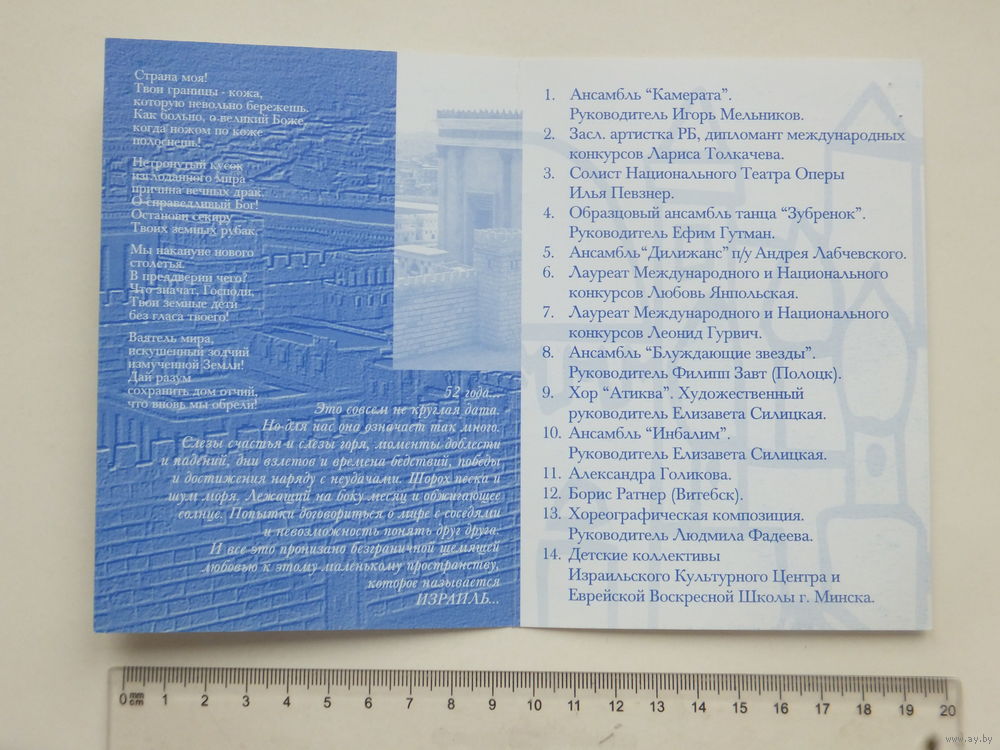 Страна моя!
Твои границы - кожа,
которую невольно бережешь.
Как больно, о великий Боже,
когда ножом по коже
полоснешь!
Нетронутый кусок
изглоданного мира -
причина вечных драк.
О справедливый Бог!
Останови секиру
Твоих земных рубак.
Мы накануне нового
столетья.
В преддверии чего?
Что значат, Господи,
Твои земные дети
без гласа твоего!
Ваятель мира,
искушенный зодчий
измученной Земли!
Дай разум
сохранить дом отчий,
что вновь мы обрели!
52 года...
Это совсем не круглая дата.
Но для нас она означает так много.
Слезы счастья и слезы горя, моменты доблести
и падений, дни взлетов и времена бедствий, победы
и достижения наряду с неудачами. Шорох песка и
шум моря. Лежащий на боку месяц и обжигающее
солнце. Попытки договориться о мире с соседями
и невозможность понять друг друга.
И все это пронизано безграничной щемящей
любовью к этому маленькому пространству,
которое называется
ИЗРАИЛЬ...
1. Ансамбль “Камерата”.
Руководитель Игорь Мельников.
2. Засл. артистка РБ, дипломант международных
конкурсов Лариса Толкачева.
3. Солист Национального Театра Оперы
Илья Певзнер.
4. Образцовый ансамбль танца “Зубренок”.
Руководитель Ефим Гутман.
5. Ансамбль “Дилижанс” п/у Андрея Лабчевского.
6. Лауреат Международного и Национального
конкурсов Любовь Янпольская.
7. Лауреат Международного и Национального
конкурсов Леонид Гурвич.
8. Ансамбль “Блуждающие звезды”.
Руководитель Филипп Завт (Полоцк).
9. Хор “Атиква”. Художественный
руководитель Елизавета Силицкая.
10. Ансамбль “Инбалим”.
Руководитель Елизавета Силицкая.
11. Александра Голикова.
12. Борис Ратнер (Витебск).
13. Хореографическая композиция.
Руководитель Людмила Фадеева.
14. Детские коллективы
Израильского Культурного Центра и
Еврейской Воскресной Школы г. Минска.
0 mm cm 1 2 3 4 5 6 7 8 9 10 11 12 13 14 15 16 17 18 19 20
www.ay.by